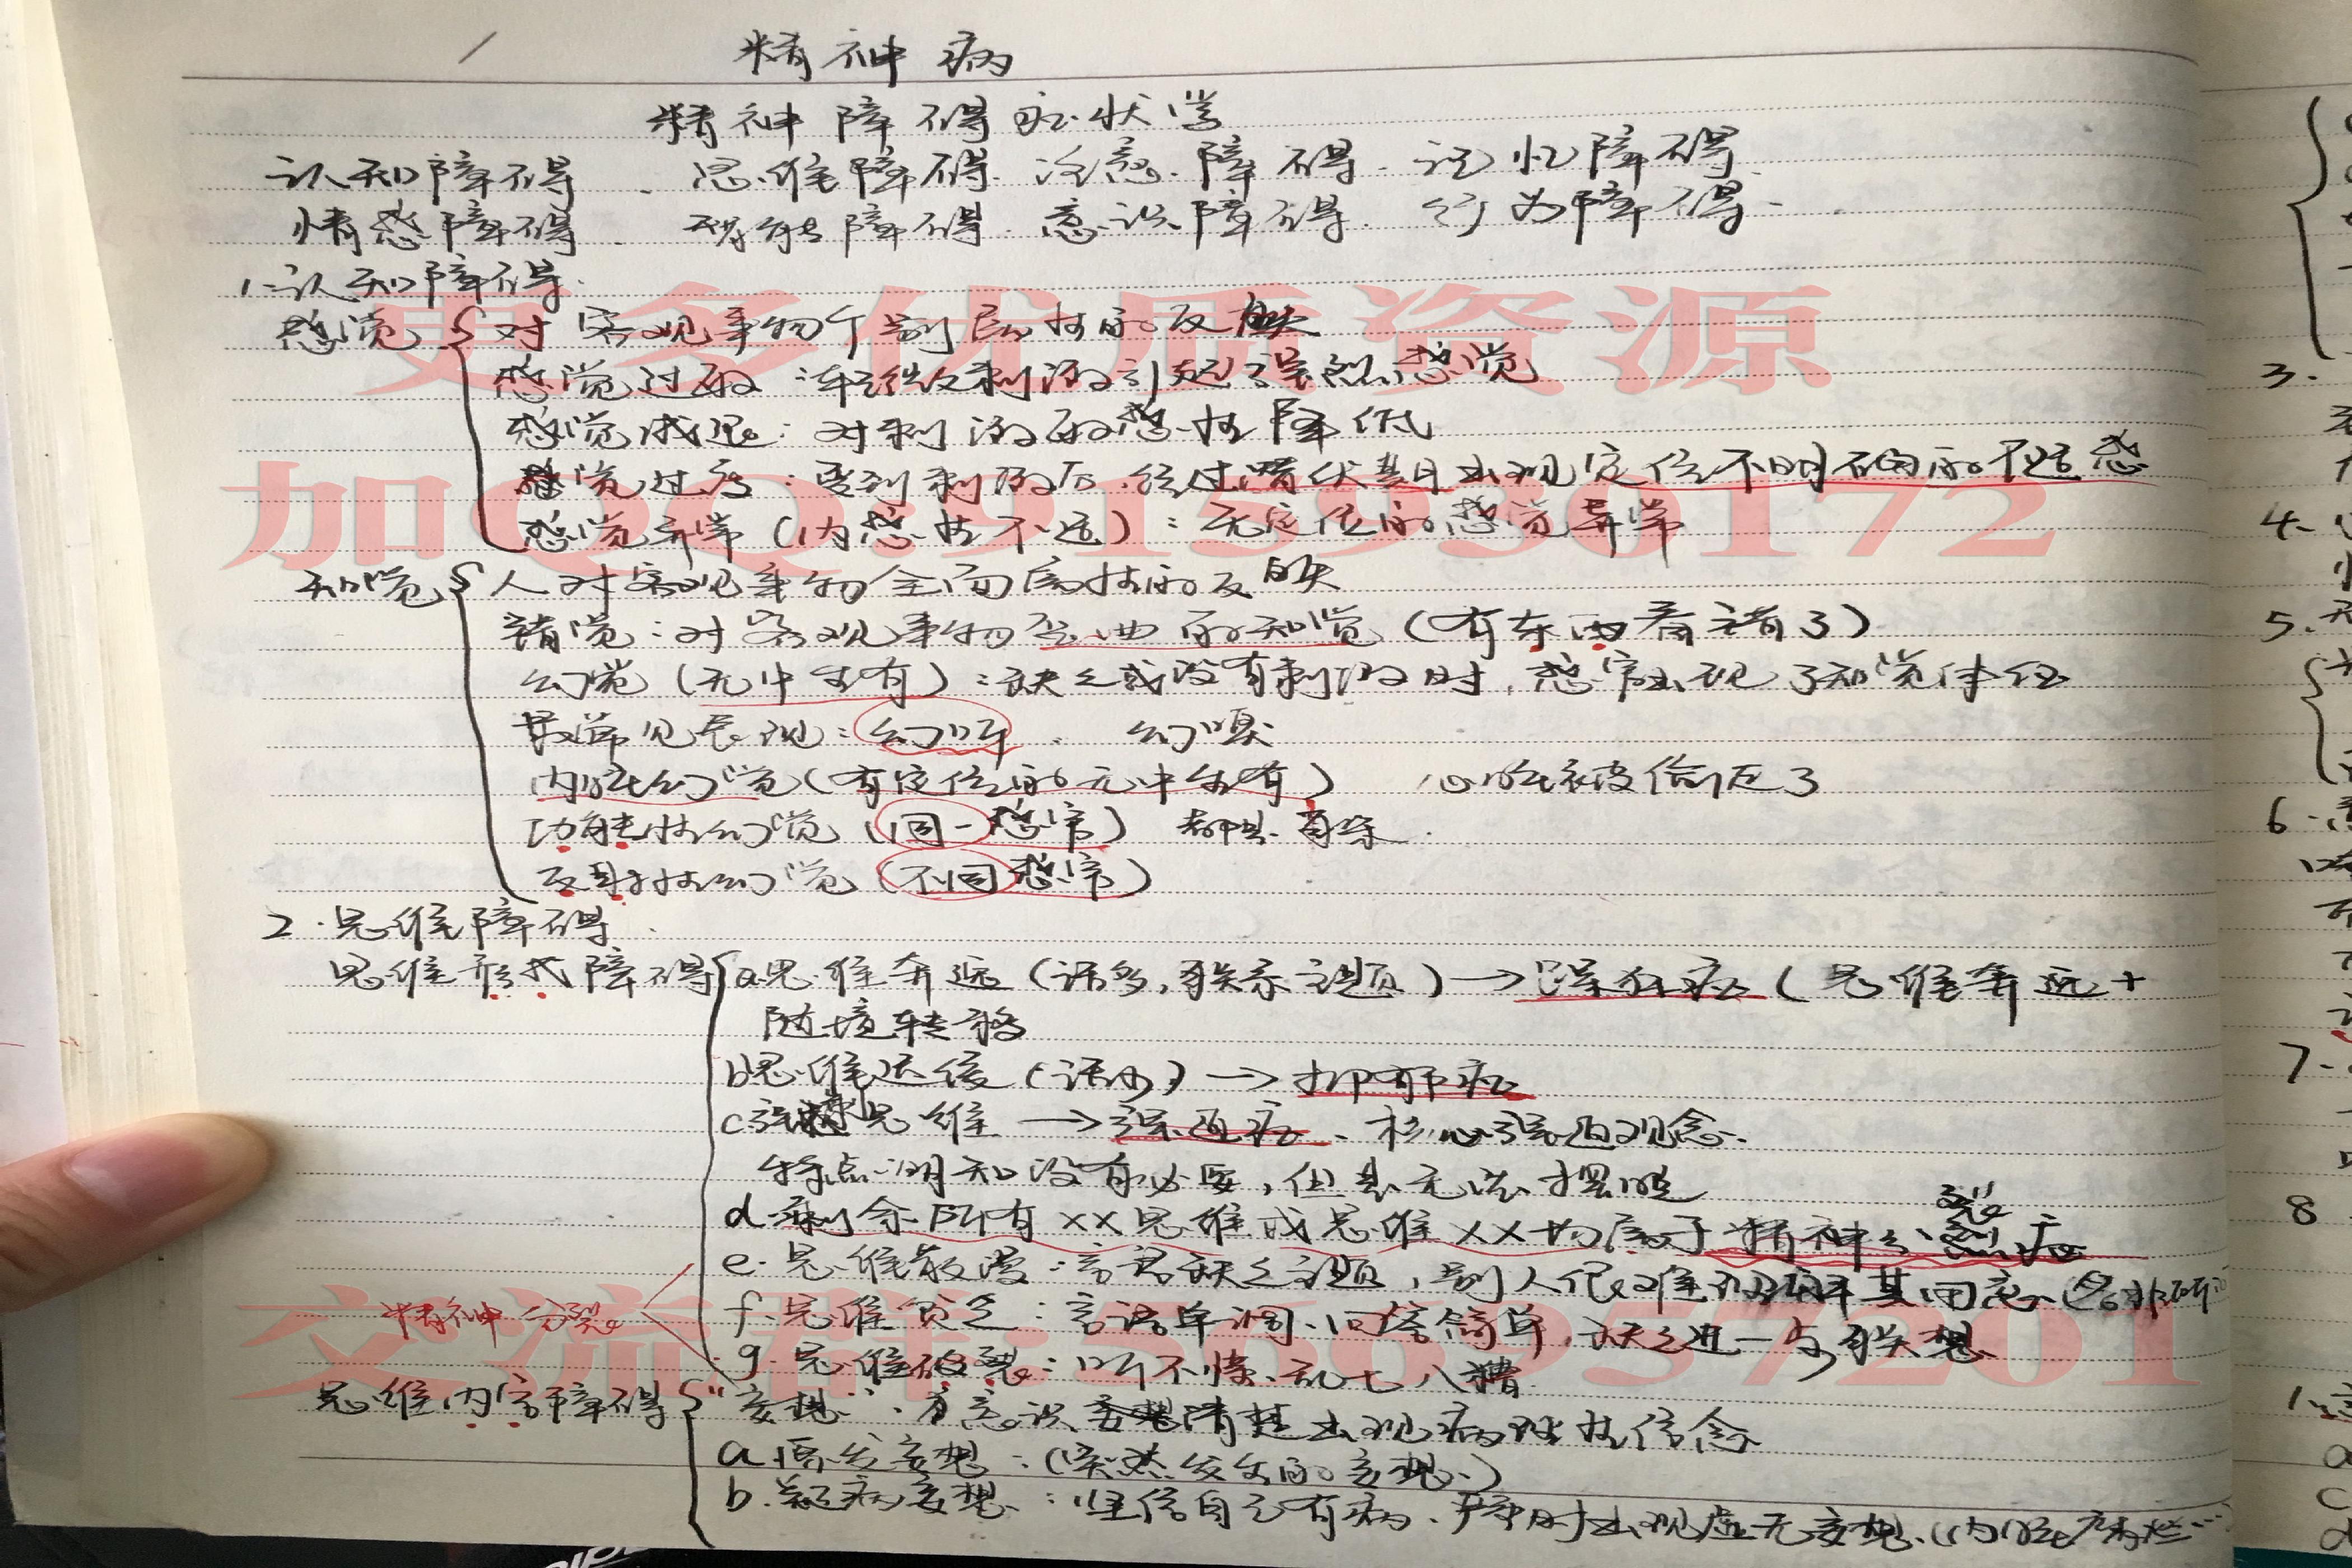 精神病
精神障碍症状学
认知障碍、思维障碍、注意障碍、记忆障碍、
情感障碍、智能障碍、意识障碍、行为障碍、
1.认知障碍.
感觉{对客观事物个别属性的反映
感觉过敏:轻微刺激引起强烈感觉
感觉减退:对刺激敏感性降低
感觉过度:受到刺激后,经过潜伏期出现定位不明确的不适感
感觉异常(内感性不适):无定位的感觉异常
知觉{人对客观事物全面属性的反映
错觉:对客观事物歪曲的知觉(有东西看错了)
幻觉(无中生有):缺乏或没有刺激时,感官出现了知觉体征
最常见表现:幻听、幻嗅
内脏幻觉(有定位的无中生有) 心脏被偷走了
功能性幻觉(同一感官) 都是真实.
反射性幻觉(不同感官)
2.思维障碍.
思维形式障碍{a.思维奔逸(话多,联系主题)→躁狂症(思维奔逸+
随境转移
b思维迟缓(话少)→抑郁症
c强迫思维→强迫症、核心强迫观念.
特点:明知没有必要,但是无法摆脱
d.剩余所有XX思维或思维XX均属于精神分裂症
e.思维散漫:言语缺乏主题,别人很难理解其用意(答非所问
精神分裂
f.思维贫乏:言语单调、回答简单,缺乏进一步联想
g.思维破裂:听不懂、乱七八糟
思维内容障碍{"妄想":为意识清楚出现病理性信念
a.原发妄想:(突然发生的妄想)
b.疑病妄想:坚信自己有病、严重时出现虚无妄想(内脏腐烂…
更多优质资源
加QQ:915930172
交流群:566957201
3.
4.
5.
6.
7.
8
1.
a
c
d